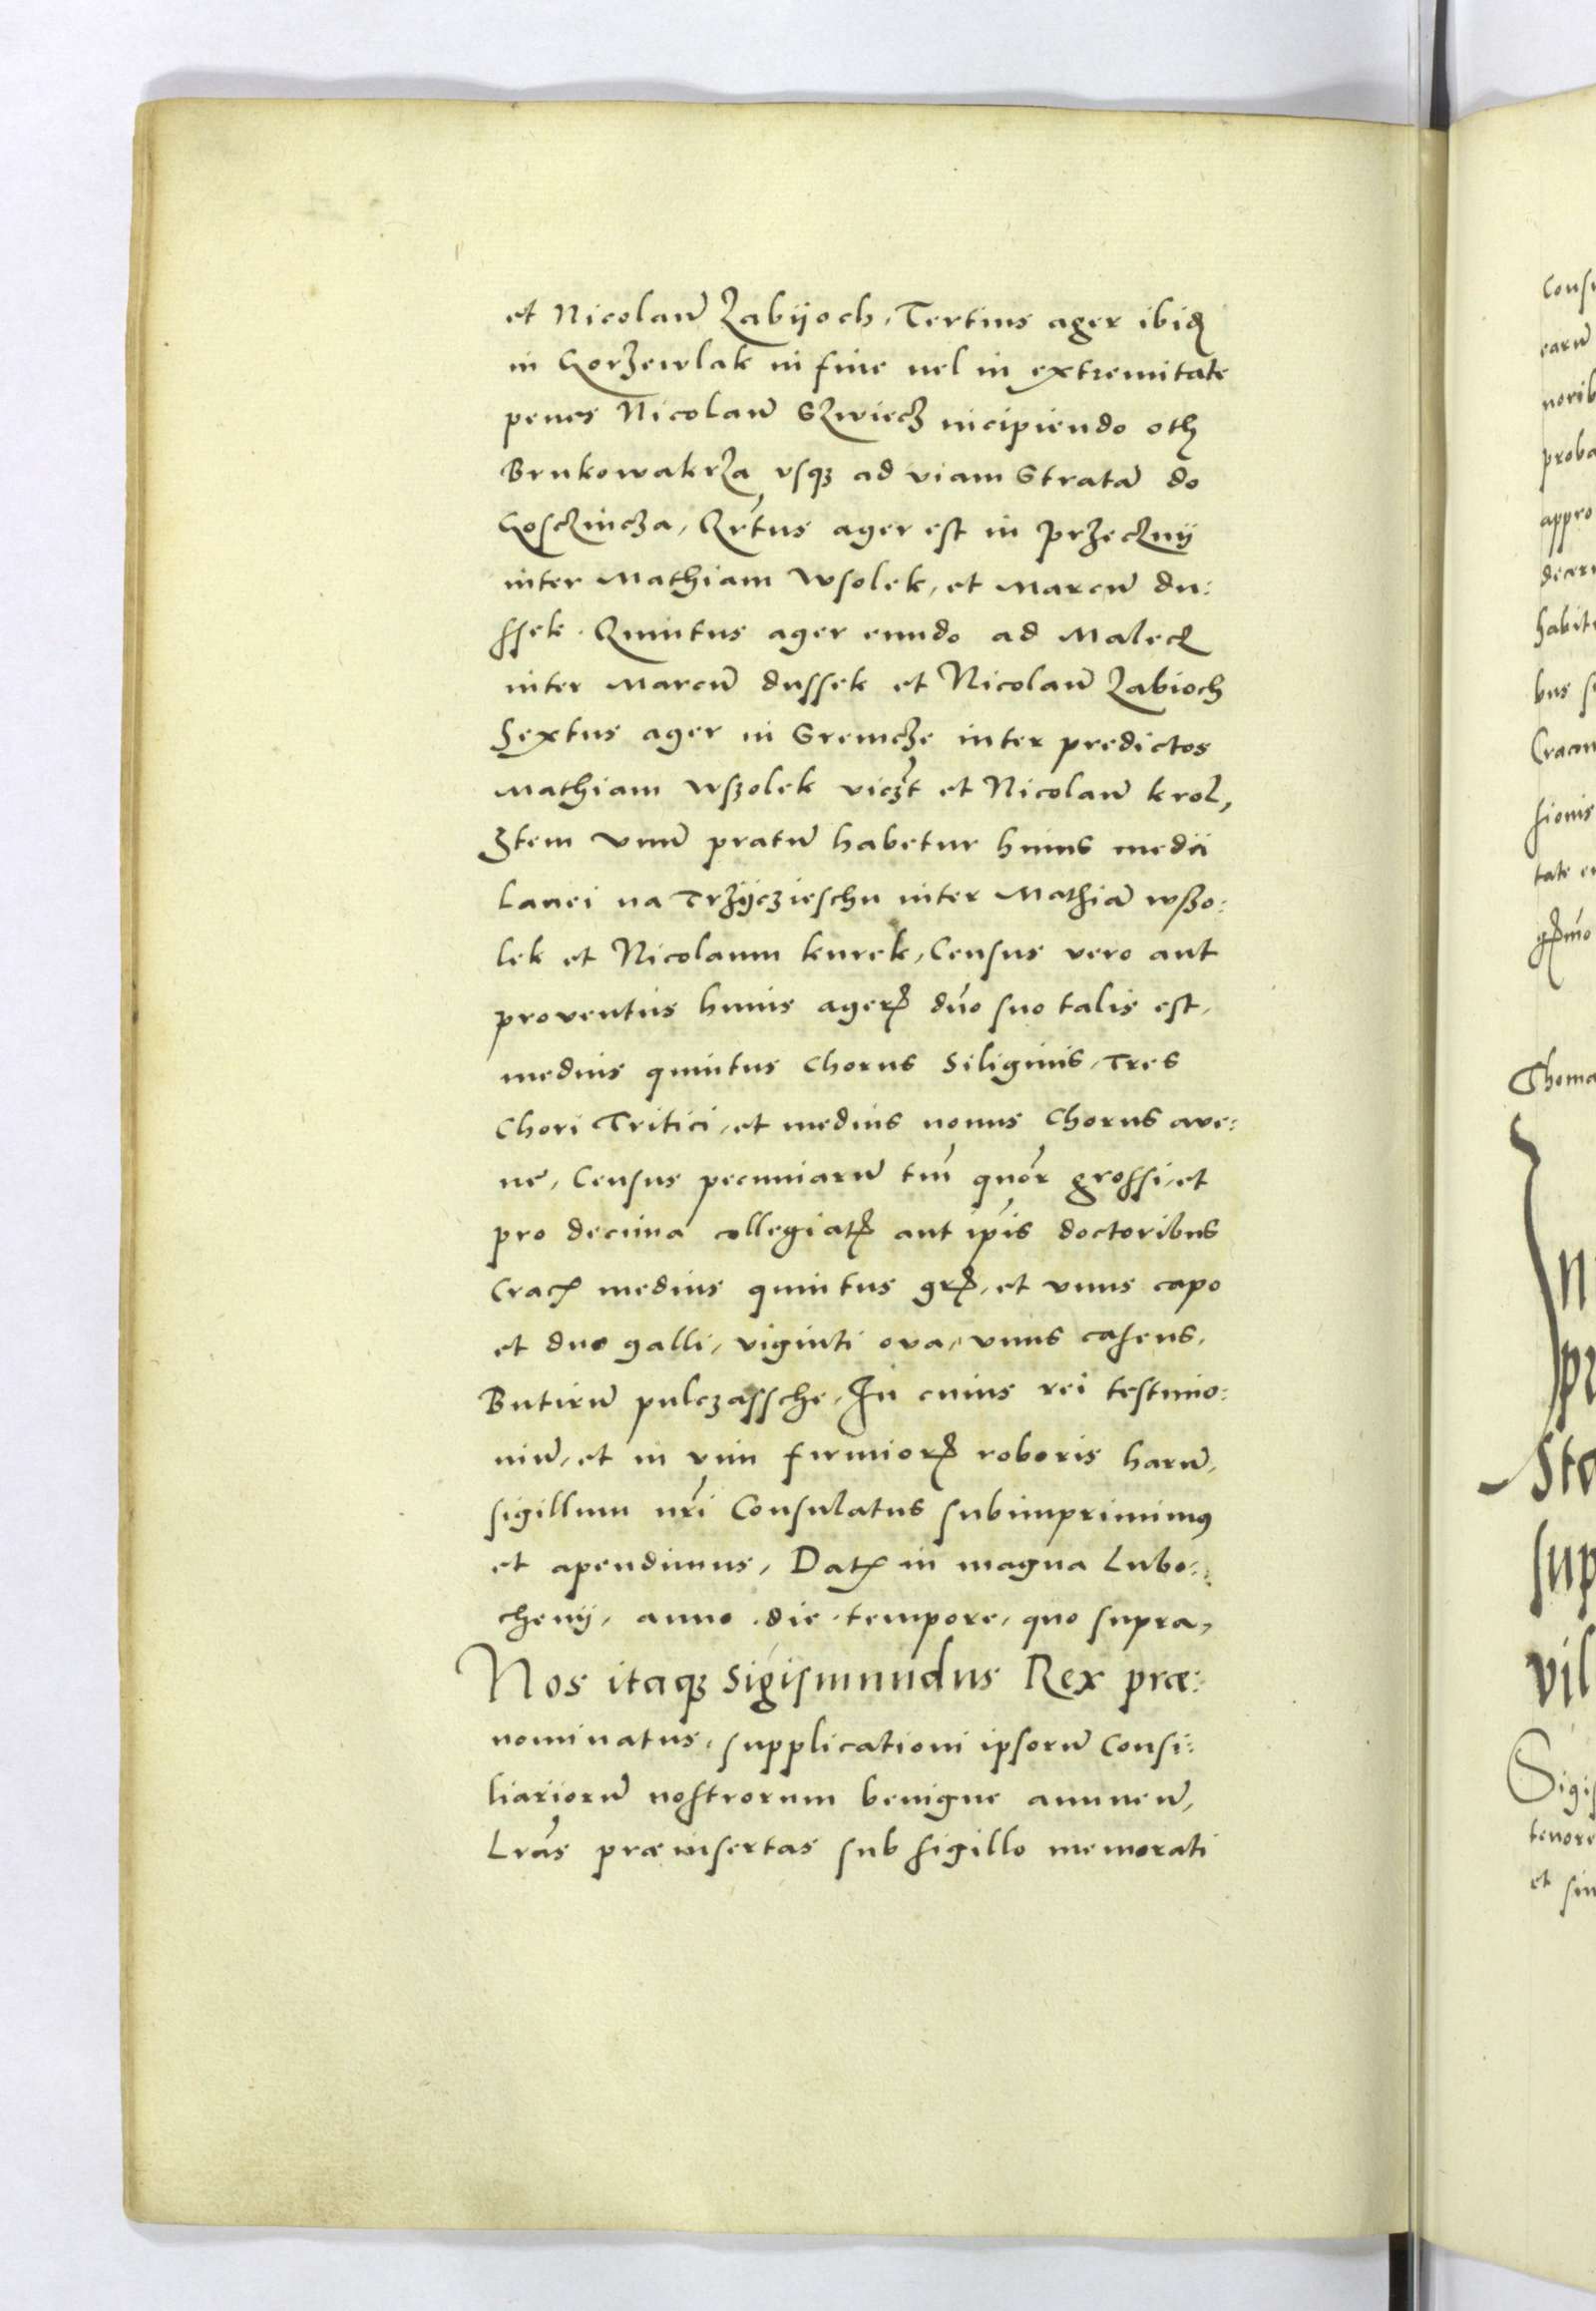 et Nicolaū Zabijoch, Tertius ager ibid
in Gorzewlak in fine uel in extremitate
penes Nicolaū Szwiecz incipiendo oth
Brukowakrza vsq3 ad viam Stratā do
Gosczincza, Qrtus ager est in Przecznij
inter Mathiam Wsolek, et Marcū du:
ssek. Quintus ager eundo ad Malecz
inter Marcū dussek et Nicolaū Zabioch
Sextus ager in Gremcze inter predictos
Mathiam Wszolek viczt et Nicolaū krol,
Item vnū pratū habetur huius medii
Lanei na Trzijczieschu inter Mathiā wszo:
lek et Nicolaum kurek, Census vero aut
proventus huius ager dno suo talis est,
medius quintus Chorus Siliginis, Tres
Chori Tritici, et medius nonus Chorus ave:
ne, Census pecuniarū tm quor grossi, et
pro decima collegiat aut ipis doctoribus
Crac medius quintus gr, et vnus capo
et duo galli, viginti ova, vnus caseus,
Butirū pulczassche, In cuius rei testimo:
niū, et in vim firmior roboris harū,
sigillum nri Consulatus subimprimimus
et apendimus, Dat in magna Lubo:
chenij, anno die tempore, quo supra,
Nos itaq3 Sigismundus Rex præ:
nominatus, supplicationi ipsorū Consi:
liariorū nostrorum benigne annuen,
Lras præinsertas sub sigillo memorati